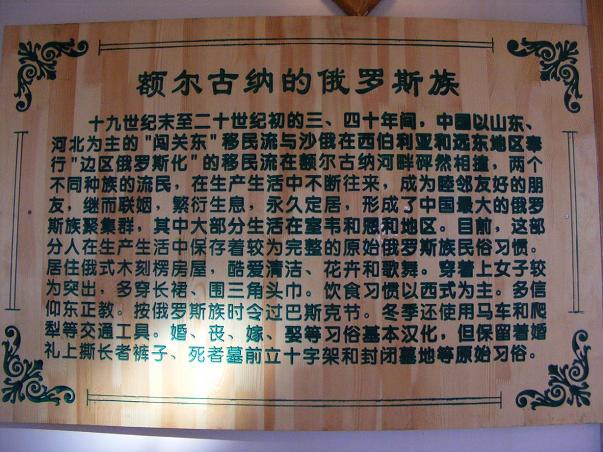 额尔古纳的俄罗斯族
十九世纪末至二十世纪初的三、四十年间，中国以山东、
河北为主的"闯关东"移民流与沙俄在西伯利亚和远东地区奉
行"边区俄罗斯化"的移民流在额尔古纳河畔砰然相撞，两个
不同种族的流民，在生产生活中不断往来，成为睦邻友好的朋
友，继而联姻，繁衍生息，永久定居，形成了中国最大的俄罗
斯族聚集群，其中大部分生活在室韦和恩和地区。目前，这部
分人在生产生活中保存着较为完整的原始俄罗斯族民俗习惯。
居住俄式木刻楞房屋，酷爱清洁、花卉和歌舞。穿着上女子较
为突出，多穿长裙、围三角头巾。饮食习惯以西式为主。多信
仰东正教。按俄罗斯族时令过巴斯克节。冬季还使用马车和爬
犁等交通工具。婚、丧、嫁、娶等习俗基本汉化，但保留着婚
礼上撕长者裤子、死者墓前立十字架和封闭墓地等原始习俗。